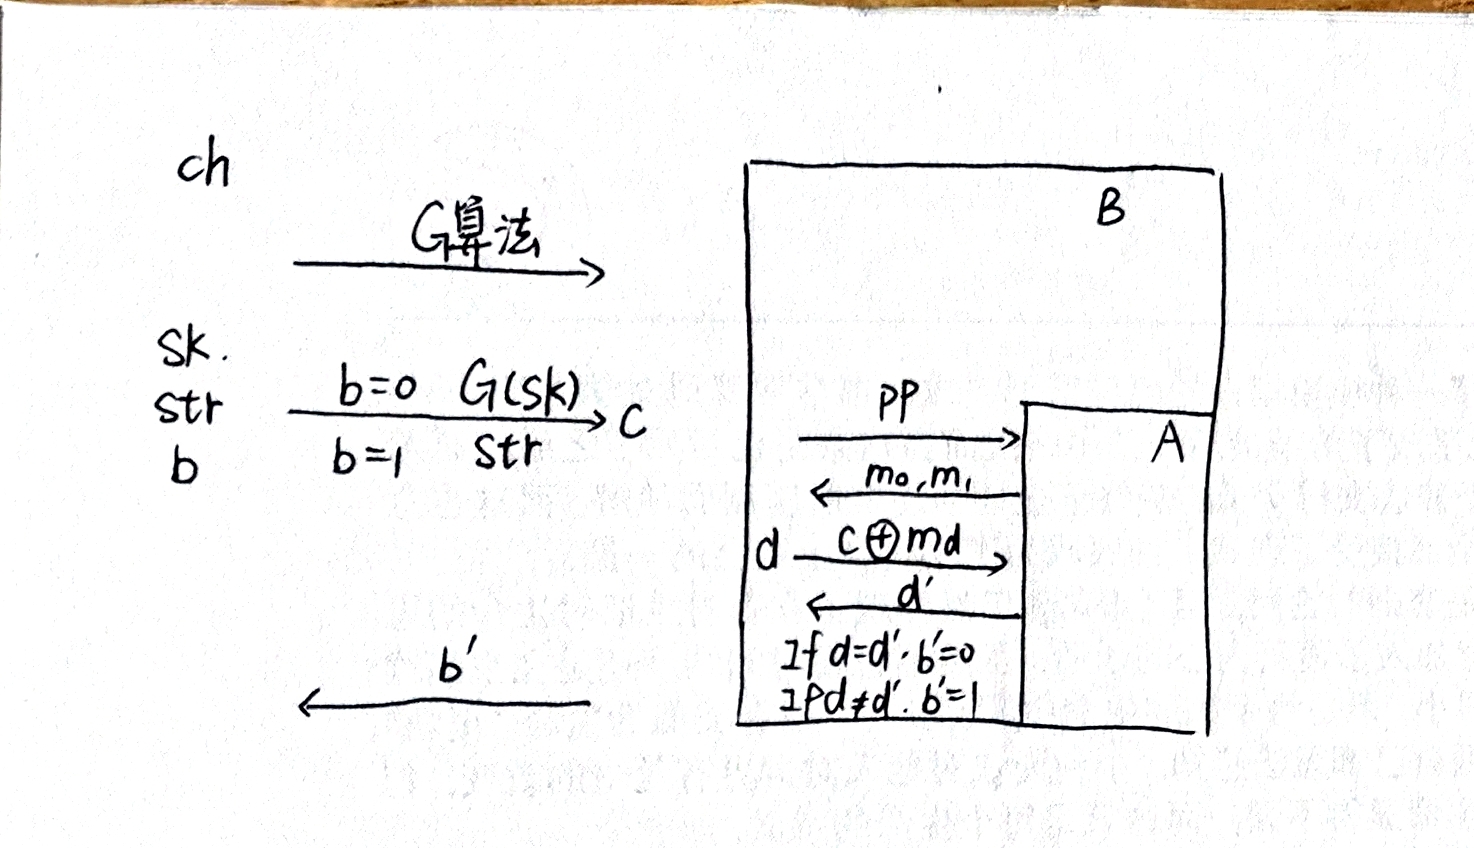 ch
G算法
B
sk.
str
b
b=0 G(sk)
b=1 str
c
PP
A
m₀,m₁
d
c⊕md
d'
If d=d'. b'=0
If d≠d'. b'=1
b'